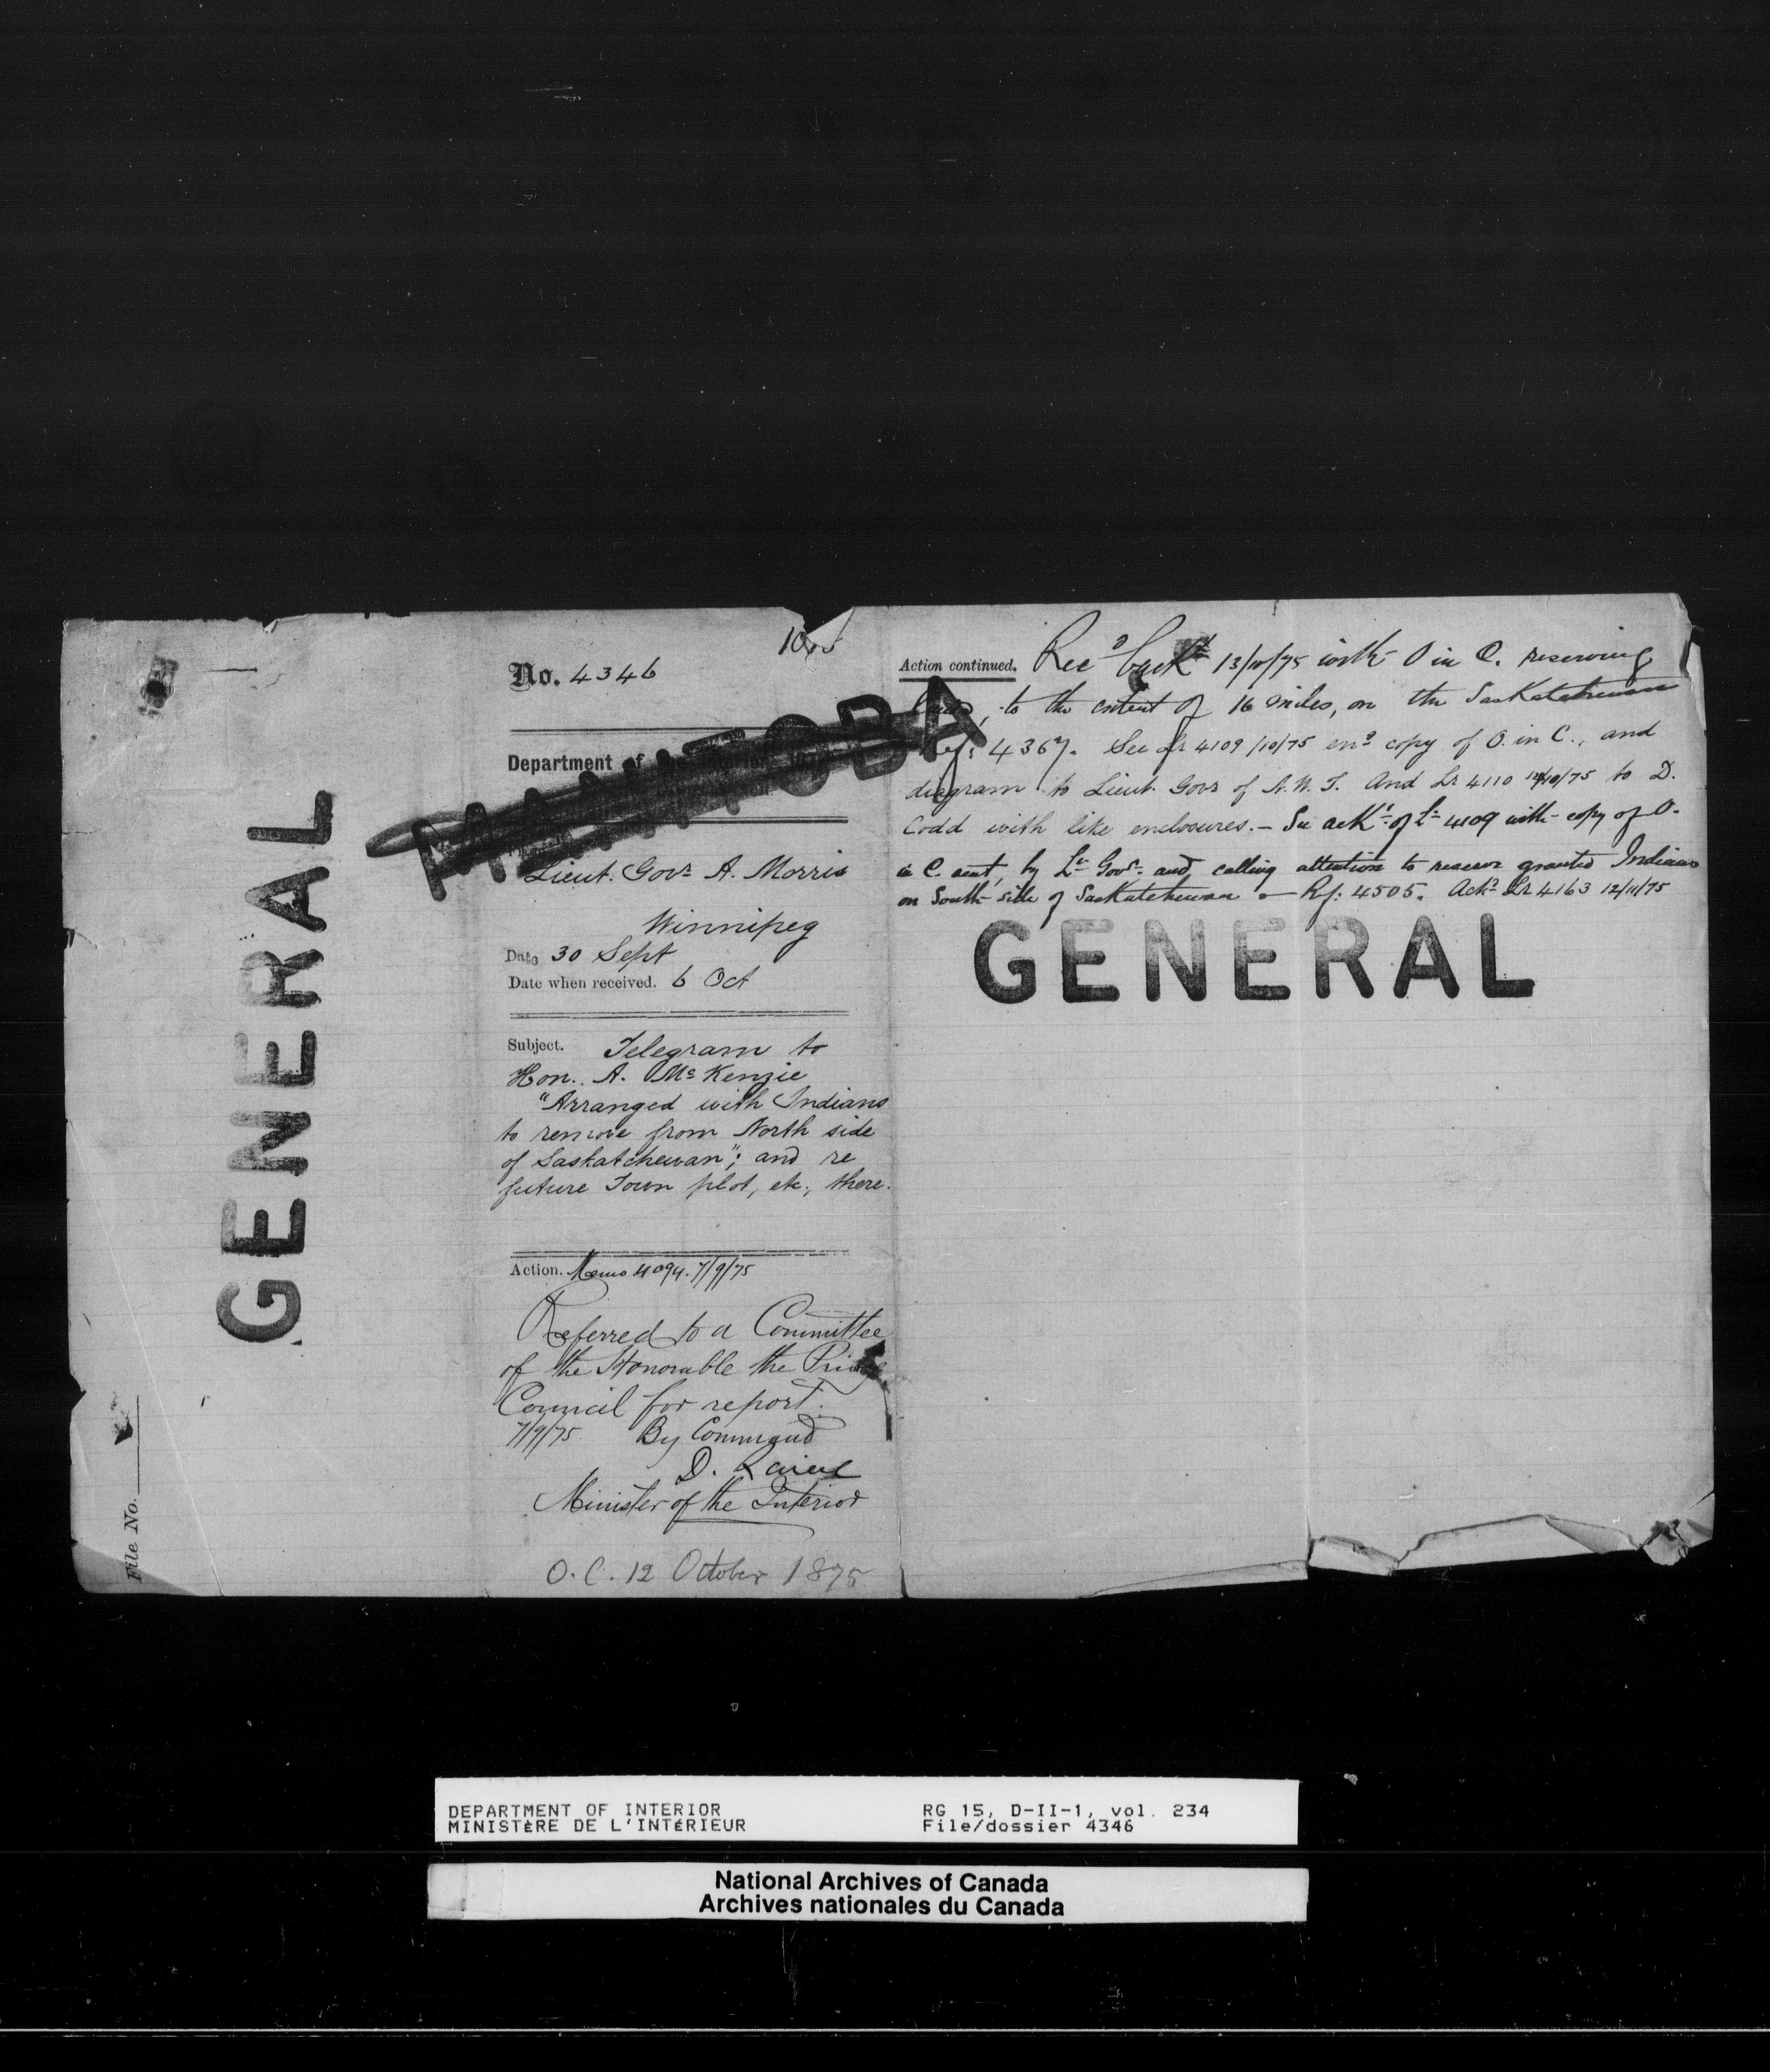 GENERAL
File No.
No. 4346
Department of the Interior, 187
MANITOBA
Lieut. Govr A. Morris
Winnipeg
Date 30 Sept
Date when received. 6 Oct
Subject. Telegram to
Hon. A. McKenzie
"Arranged with Indians
to remove from North side
of Saskatchewan"; and re
future Town plot, etc., there.
Action. Memo 4094. 7/9/75
Referred to a Committee
of the Honorable the Privy
Council for report.
7/9/75. By Command
D. Laird
Minister of the Interior
O.C. 12 October 1875
Action continued. Recd back 13/10/75 with O in C. reserving
land, to the extent of 16 miles, on the Saskatchewan
Ref: 4367. See Lr 4109 /10/75 encg copy of O. in C., and
diagram to Lieut. Govr of N.W.T. And Lr 4110 /10/75 to D.
Codd with like enclosures. – See ackt of Lr 4109 with copy of O.
in C. sent, by Lt Govr and calling attention to reserve granted Indians
on South side of Saskatchewan – Rf: 4505. Ackd Lr 4163 12/11/75
GENERAL
DEPARTMENT OF INTERIOR
MINISTÈRE DE L'INTÉRIEUR
RG 15, D-II-1, vol. 234
File/dossier 4346
National Archives of Canada
Archives nationales du Canada